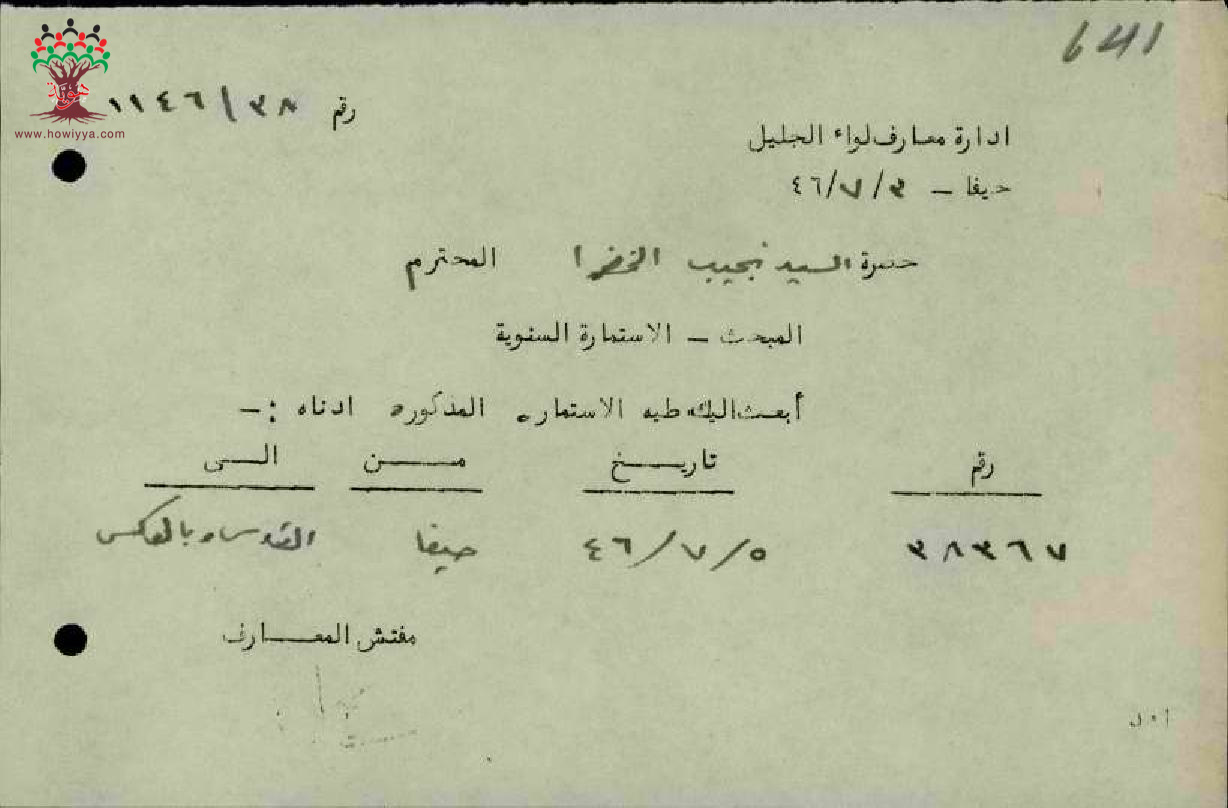 641
هوية
www.howiyya.com
رقم ٣٨/١١٤٦
ادارة معارف لواء الجليل
حيفا – ٤٦/٧/٣
حضرة السيد نجيب الخضرا المحترم
المبحث – الاستمارة السنوية
أبعث اليك طيه الاستماره المذكوره ادناه :–
رقم تاريخ من الى
٣٨٣٦٧ ٤٦/٧/٥ حيفا القدس وبالعكس
مفتش المعارف